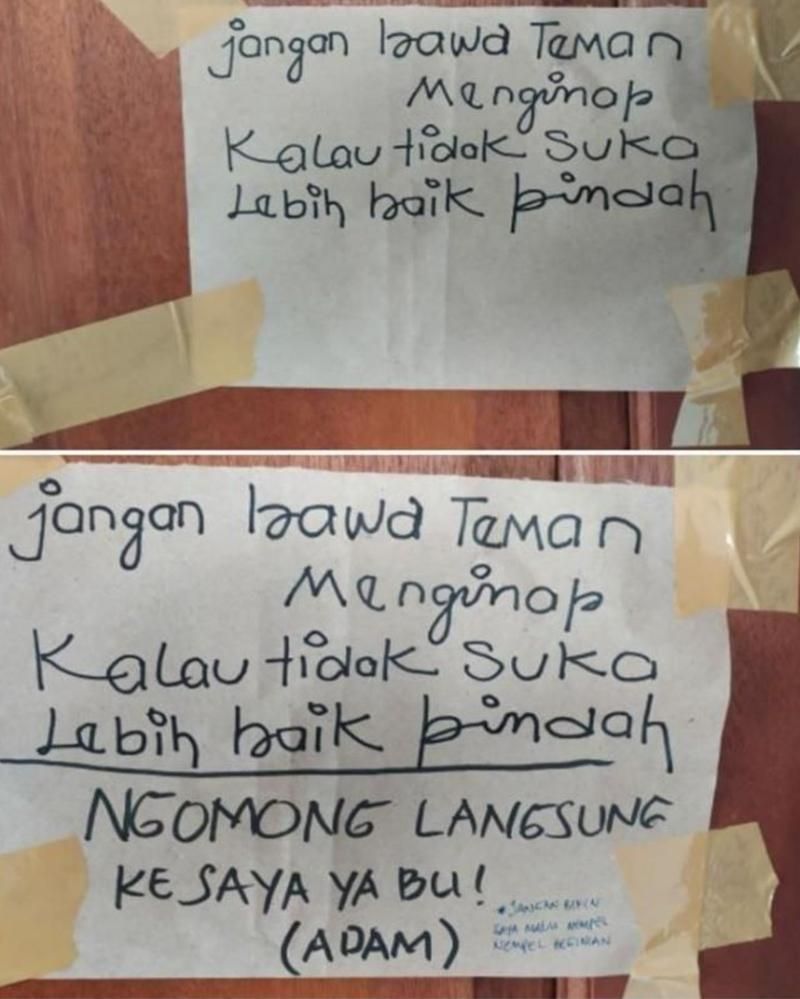 jangan bawa Teman
Menginap
Kalau tidak suka
Lebih baik pindah
jangan bawa Teman
Menginap
Kalau tidak suka
Lebih baik pindah
NGOMONG LANGSUNG
KE SAYA YA BU!
(ADAM)
* JANGAN BIKIN
SAYA MALU NEMPEL
NEMPEL BEGINIAN